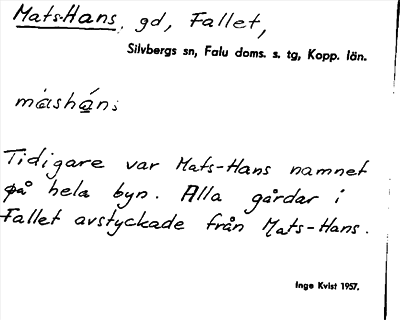 Mats-Hans, gd, Fallet,
Silvbergs sn, Falu doms. s. tg, Kopp. län.
màshán;
Tidigare var Mats-Hans namnet
på hela byn. Alla gårdar i
Fallet avstyckade från Mats-Hans.
Inge Kvist 1957.